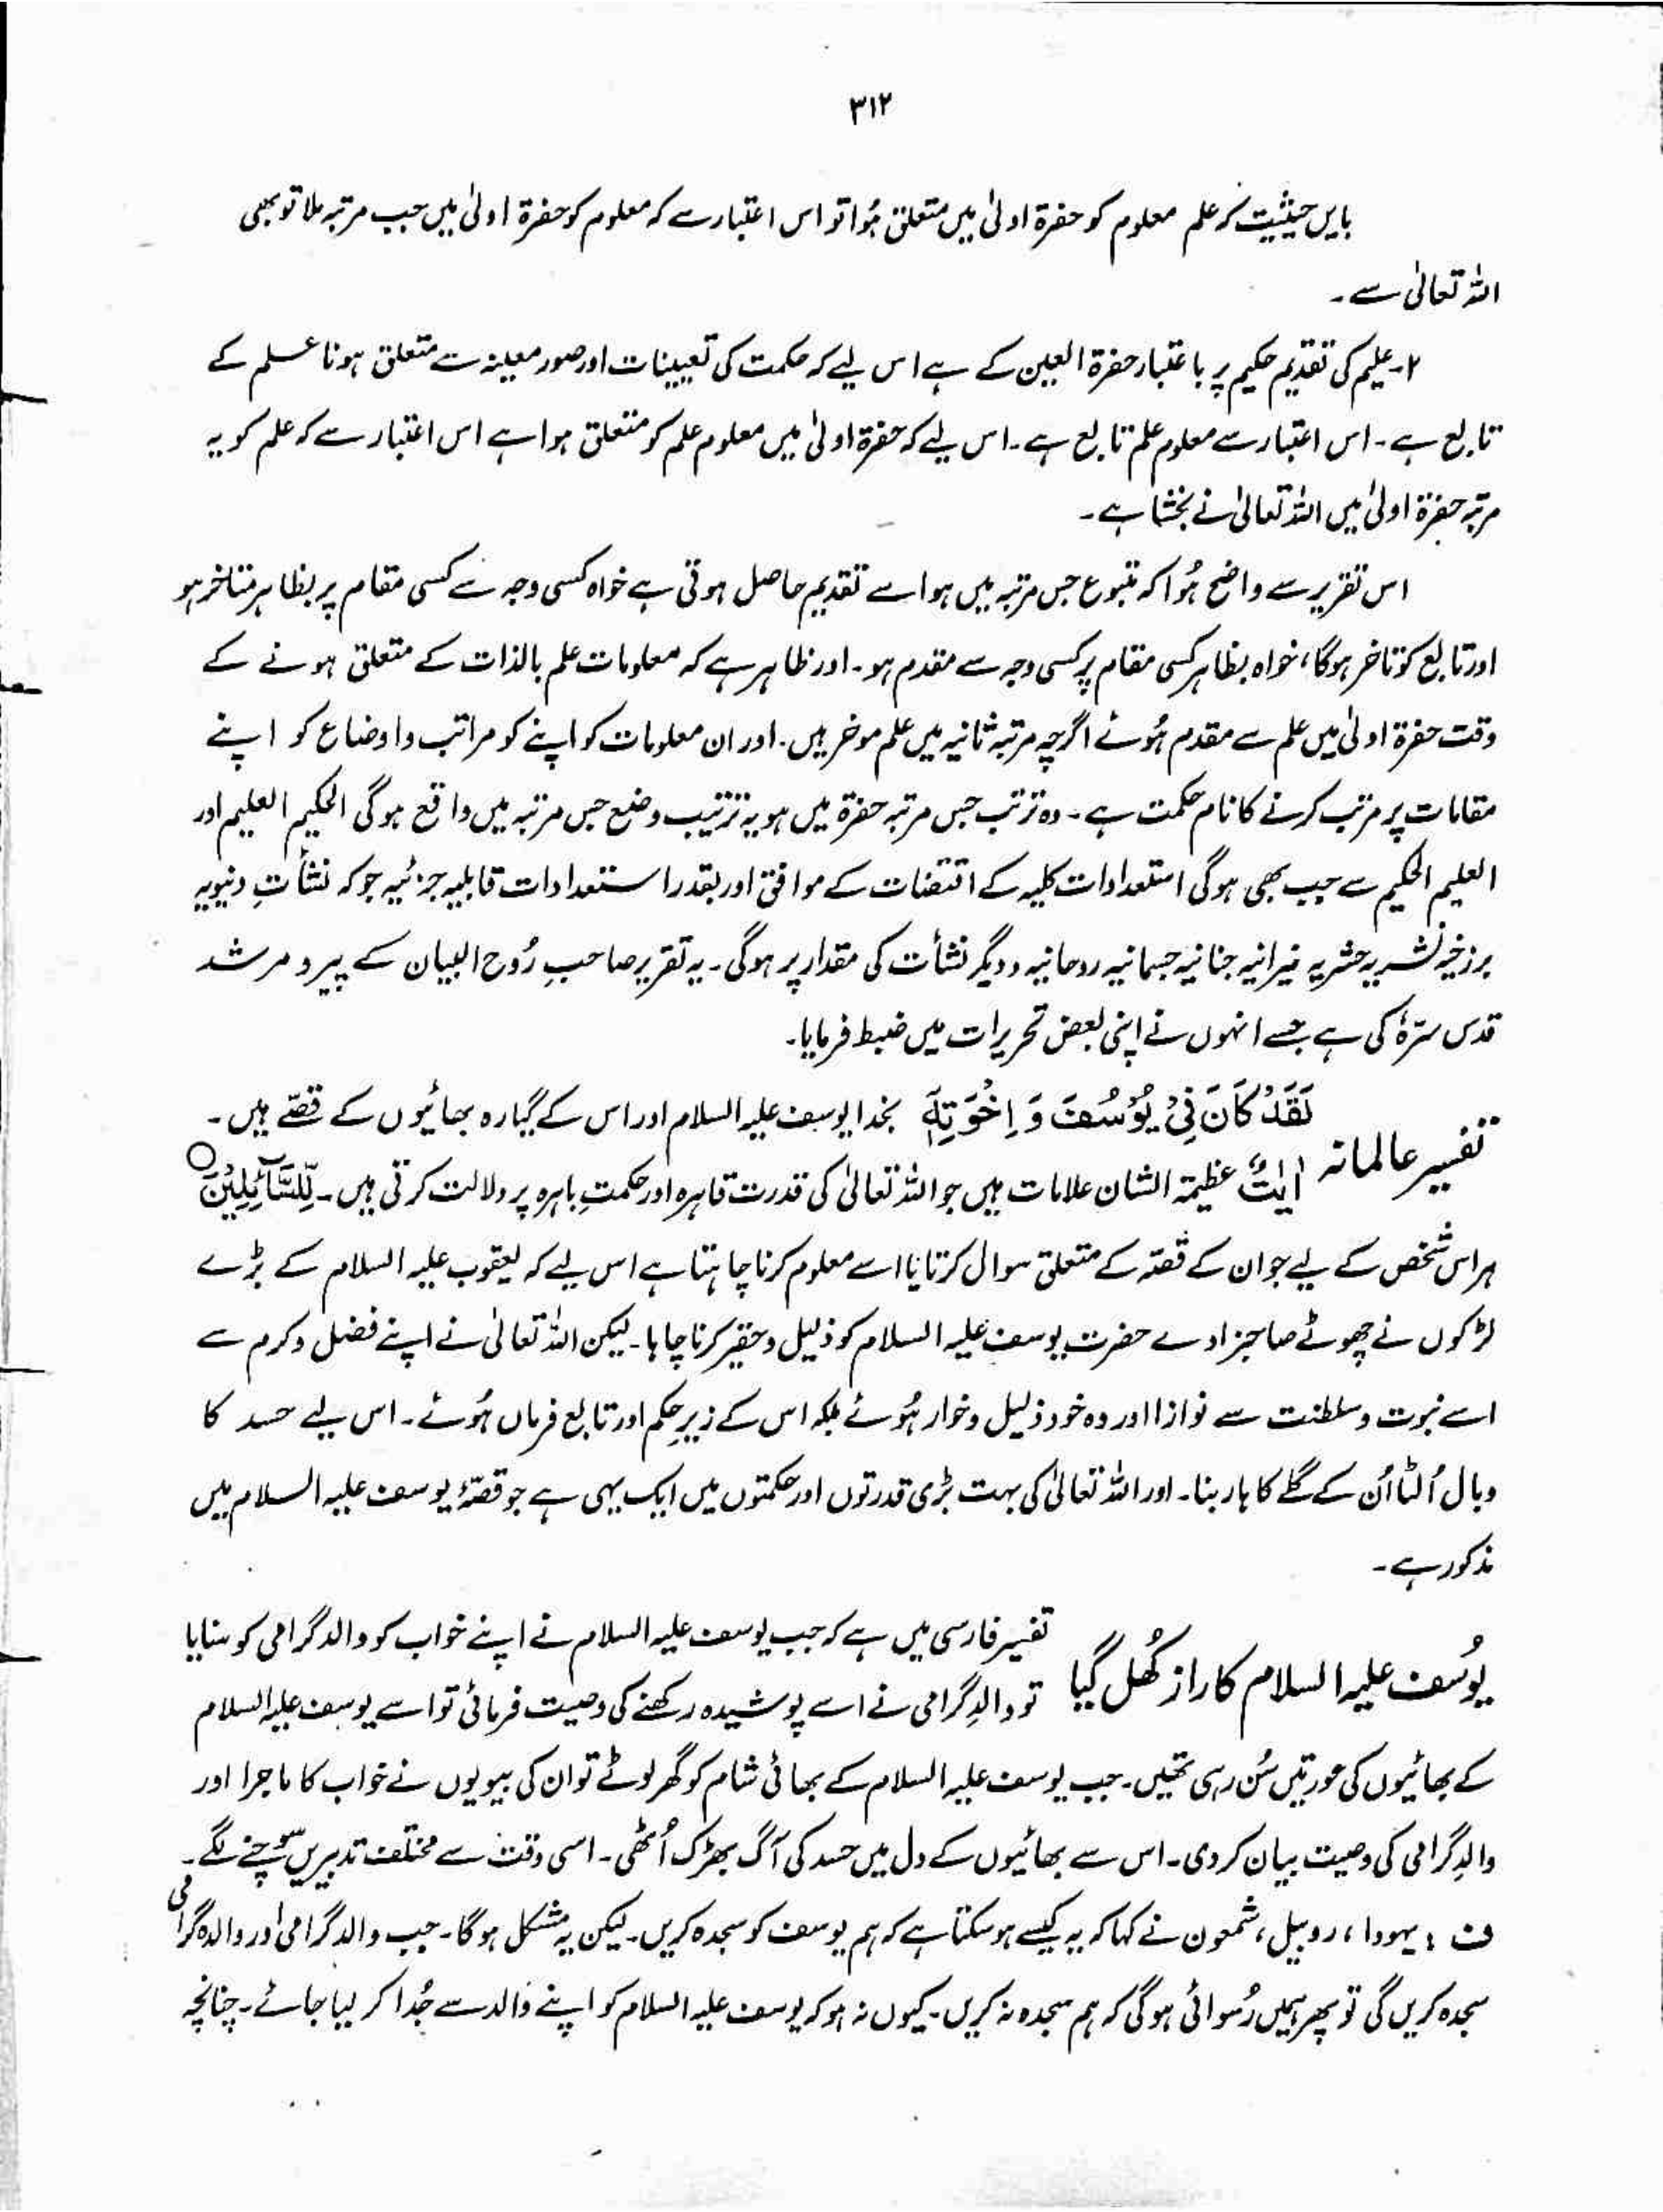 ۳۱۲
بایں حیثیت کہ علم معلوم کو حضرۃ اولیٰ میں متعلق ہُوا تو اس اعتبار سے کہ معلوم کو حضرۃ اولیٰ میں جب مرتبہ ملا تو بھی
اللہ تعالیٰ سے۔
۲۔ علیم کی تقدیم حکیم پر با عتبار حضرۃ العین کے ہے اس لیے کہ حکمت کی تعیینات اور صور معینہ سے متعلق ہونا علم کے
تابع ہے۔ اس اعتبار سے معلوم علم تابع ہے۔ اس لیے کہ حضرۃ اولیٰ میں معلوم علم کو متعلق ہوا ہے اس اعتبار سے کہ علم کو یہ
مرتبہ حضرۃ اولیٰ میں اللہ تعالیٰ نے بخشا ہے۔
اس تقریر سے واضح ہُوا کہ متبوع جس مرتبہ میں ہو اسے تقدیم حاصل ہوتی ہے خواہ کسی وجہ سے کسی مقام پر بظاہر متاخر ہو
اور تابع کو تاخر ہوگا، خواہ بظاہر کسی مقام پر کسی وجہ سے مقدم ہو۔ اور ظاہر ہے کہ معلومات علم بالذات کے متعلق ہونے کے
وقت حضرۃ اولیٰ میں علم سے مقدم ہُوئے اگرچہ مرتبہ ثانیہ میں علم موخر ہیں۔ اور ان معلومات کو اپنے کو مراتب و اوضاع کو اپنے
مقامات پر مرتب کرنے کا نام حکمت ہے۔ وہ ترتب جس مرتبہ حضرۃ میں ہو یہ ترتیب وضع جس مرتبہ میں واقع ہوگی الحکیم العلیم اور
العلیم الحکیم سے جب بھی ہوگی استعدادات کلیہ کے اقتضات کے موافق اور بقدر استعدادات قابلیہ جزئیہ جو کہ نشأتِ دنیویہ
برزخیہ نشریہ حشریہ نیرانیہ جنانیہ جسمانیہ روحانیہ و دیگر نشأت کی مقدار پر ہوگی۔ یہ تقریر صاحبِ رُوح البیان کے پیر و مرشد
قدس سرّہٗ کی ہے جسے انہوں نے اپنی بعض تحریرات میں ضبط فرمایا۔
تفسیر عالمانہ لَقَدْ كَانَ فِیْ یُوْسُفَ وَ اِخْوَتِهٖۤ بخدا یوسف علیہ السلام اور اس کے گیارہ بھائیوں کے قصّے ہیں۔
اٰیٰتٌ عظیمۃ الشان علامات ہیں جو اللہ تعالیٰ کی قدرت قاہرہ اور حکمتِ باہرہ پر دلالت کرتی ہیں۔ لِّلسَّآئِلِیْنَ ○
ہر اس شخص کے لیے جو ان کے قصّہ کے متعلق سوال کرتا یا اسے معلوم کرنا چاہتا ہے اس لیے کہ یعقوب علیہ السلام کے بڑے
لڑکوں نے چھوٹے صاحبزادے حضرت یوسف علیہ السلام کو ذلیل و حقیر کرنا چاہا۔ لیکن اللہ تعالیٰ نے اپنے فضل و کرم سے
اسے نبوت و سلطنت سے نوازا اور وہ خود ذلیل و خوار ہُوئے بلکہ اس کے زیرِ حکم اور تابع فرماں ہُوئے۔ اس لیے حسد کا
وبال اُلٹا اُن کے گلے کا ہار بنا۔ اور اللہ تعالیٰ کی بہت بڑی قدرتوں اور حکمتوں میں ایک یہی ہے جو قصّۂ یوسف علیہ السلام میں
مذکور ہے۔
یُوسُف علیہ السلام کا راز کُھل گیا تفسیر فارسی میں ہے کہ جب یوسف علیہ السلام نے اپنے خواب کو والد گرامی کو سنایا
تو والدِ گرامی نے اسے پوشیدہ رکھنے کی وصیت فرمائی تو اسے یوسف علیہ السلام
کے بھائیوں کی عورتیں سُن رہی تھیں۔ جب یوسف علیہ السلام کے بھائی شام کو گھر لوٹے تو ان کی بیویوں نے خواب کا ماجرا اور
والدِ گرامی کی وصیت بیان کر دی۔ اس سے بھائیوں کے دل میں حسد کی آگ بھڑک اُٹھی۔ اسی وقت سے مختلف تدبیریں سوچنے لگے۔
ف : یہودا، روبیل، شمعون نے کہا کہ یہ کیسے ہو سکتا ہے کہ ہم یوسف کو سجدہ کریں۔ لیکن یہ مشکل ہوگا۔ جب والد گرامی اور والدہ گرامی
سجدہ کریں گی تو پھر ہمیں رُسوائی ہوگی کہ ہم سجدہ نہ کریں۔ کیوں نہ ہو کہ یوسف علیہ السلام کو اپنے والد سے جُدا کر لیا جائے۔ چنانچہ